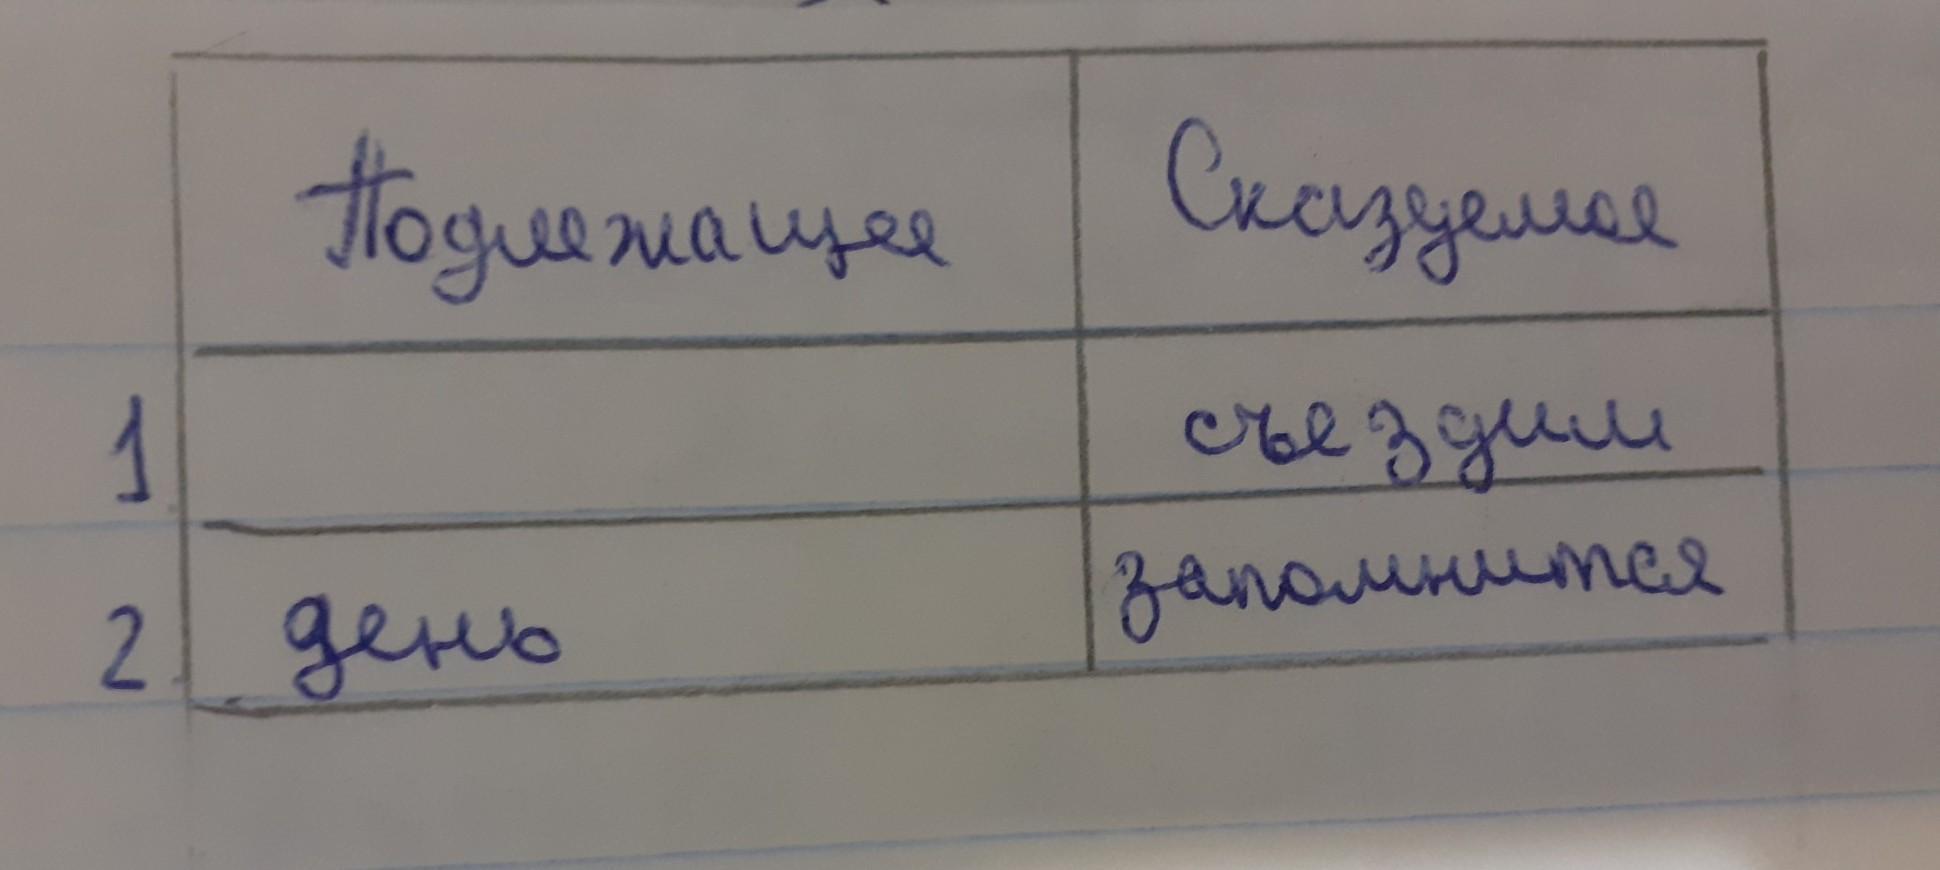 Подлежащее Сказуемое
1 съездим
2 день запомнится